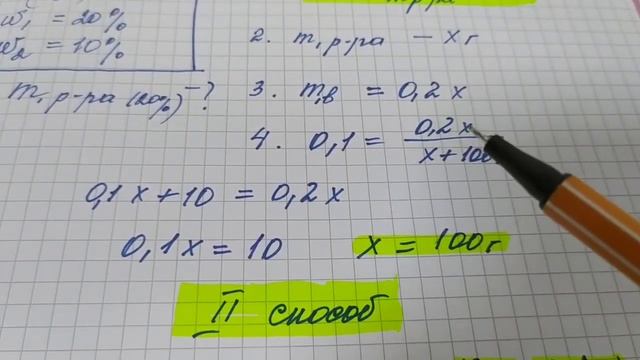 w₁ = 20%
w₂ = 10%
m₁ р-ра (20%) - ?
2. m₁ р-ра – x г
3. m₁в = 0,2 x
4. 0,1 = 0,2 x / x + 100
0,1 x + 10 = 0,2 x
0,1 x = 10
x = 100 г
II способ